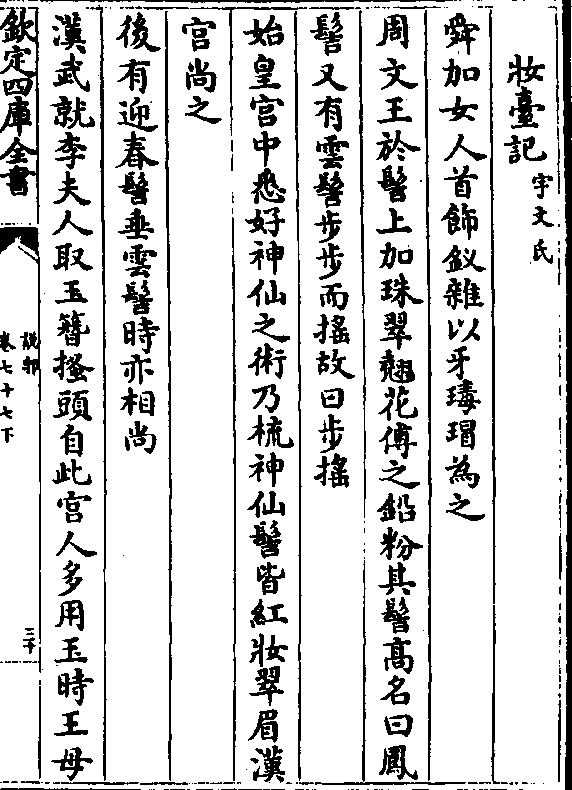 妝臺記宇文氏
舜加女人首飾釵雜以牙瑇瑁為之
周文王於髻上加珠翠翹花傅之鉛粉其髻髙名曰鳳
髻又有雲髻步步而搖故曰步搖
始皇宫中悉好神仙之術乃梳神仙髻皆紅妝翠眉漢
宫尚之
後有迎春髻垂雲髻時亦相尚
漢武就李夫人取玉簪搔頭自此宫人多用玉時王母
欽定四庫全書
説郛
卷七十七下
三十